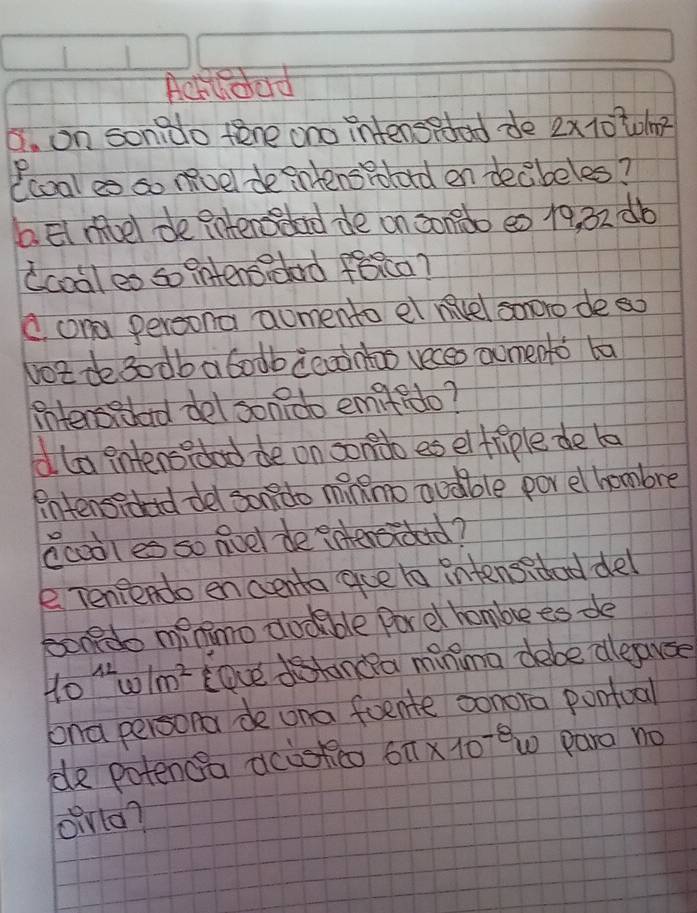 Actividad
a. Un sonido tiene una intensidad de 2x10⁻⁷ w/m²
¿cual es su nivel de intensidad en decibeles?
b. El nivel de intensidad de un sonido es 19,32 db
¿cual es su intensidad física?
c. una persona aumento el nivel sonoro de su
voz de 30db a 60db ¿cuántas veces aumentó la
intensidad del sonido emitido?
d la intensidad de un sonido es el triple de la
intensidad del sonido mínimo audible por el hombre
¿cual es su nivel de intensidad?
e Teniendo en cuenta que la intensidad del
sonido mínimo audible por el hombre es de
10⁻¹² w/m² ¿Qué distancia mínima debe alejarse
una persona de una fuente sonora puntual
de potencia acústica 6π x 10⁻⁸ w para no
oirla?